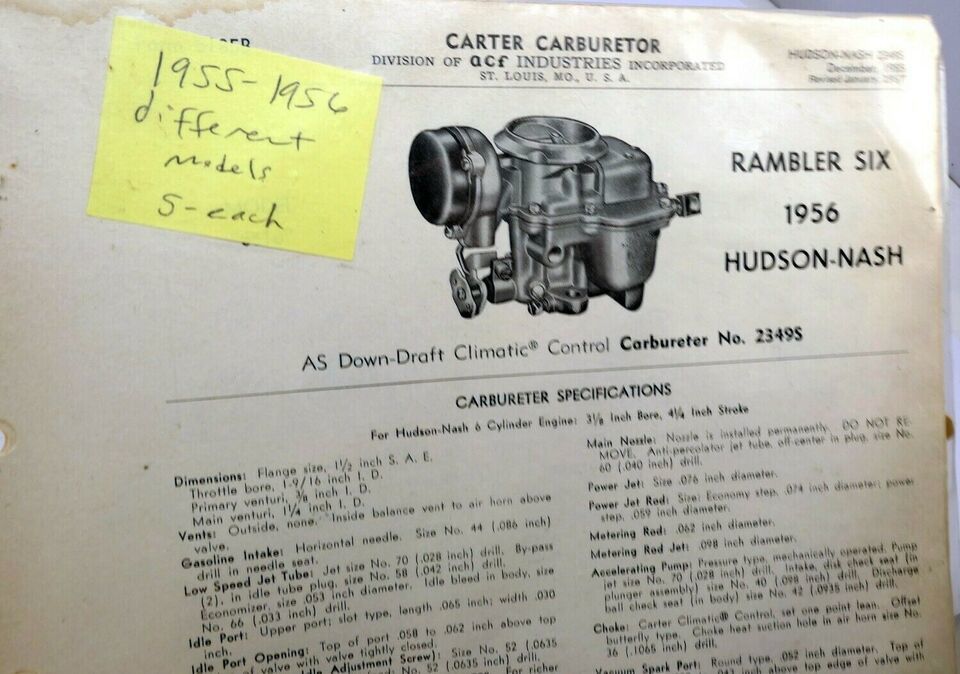 1955-1956
different
models
5-each
CARTER CARBURETOR
DIVISION OF acf INDUSTRIES INCORPORATED
ST. LOUIS, MO., U. S. A.
HUDSON-NASH 2349S
December, 1955
Revised January 1957
RAMBLER SIX
1956
HUDSON-NASH
AS Down-Draft Climatic® Control Carbureter No. 2349S
CARBURETER SPECIFICATIONS
For Hudson-Nash 6 Cylinder Engine: 3⅛ Inch Bore, 4¼ Inch Stroke
Dimensions: Flange size, 1½ inch S. A. E.
Throttle bore, 1-9/16 inch I. D.
Primary venturi, ⅜ inch I. D.
Main venturi, 1¼ inch I. D.
Vents: Outside, none. Inside balance vent to air horn above
valve.
Gasoline Intake: Horizontal needle. Size No. 44 (.086 inch)
drill in needle seat.
Low Speed Jet Tube: Jet size No. 70 (.028 inch) drill. By-pass
(2), in idle tube plug, size No. 58 (.042 inch) drill.
Economizer, size .053 inch diameter. Idle bleed in body, size
No. 66 (.033 inch) drill.
Idle Port: Upper port; slot type, length .065 inch; width .030
inch.
Idle Port Opening: Top of port .058 to .062 inch above top
of valve with valve tightly closed.
Adjustment Screw): Size No. 52 (.0635
No. 52 (.0635 inch) drill. For richer
Main Nozzle: Nozzle is installed permanently. DO NOT RE-
MOVE. Anti-percolator jet tube, off-center in plug, size No.
60 (.040 inch) drill.
Power Jet: Size .076 inch diameter.
Power Jet Rod: Size: Economy step, .074 inch diameter; power
step, .059 inch diameter.
Metering Rod: .062 inch diameter.
Metering Rod Jet: .098 inch diameter.
Accelerating Pump: Pressure type, mechanically operated. Pump
jet size No. 70 (.028 inch) drill. Intake, disk check seat (in
plunger assembly) size No. 40 (.098 inch) drill. Discharge
ball check seat (in body) size No. 42 (.0935 inch) drill.
Choke: Carter Climatic® Control, set one point lean. Offset
butterfly type. Choke heat suction hole in air horn size No.
36 (.1065 inch) drill.
Vacuum Spark Port: Round type, .052 inch diameter. Top of
.041 inch above top edge of valve with